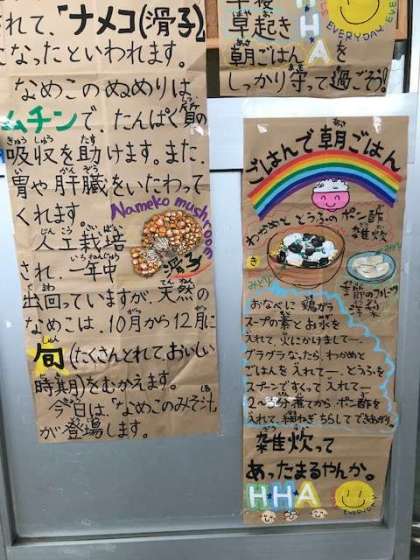 されて、「ナメコ(滑子)」
になったといわれます。
なめこのぬめりは、
ムチンで、たんぱく質の
吸収を助けます。また、
胃や肝臓をいたわって
くれます。
Nameko mushroom
人工栽培
滑子
され、一年中
出回っていますが、天然の
なめこは、10月から12月に
旬(たくさんとれて、おいしい
時期)をむかえます。
今日は、「なめこのみそ汁」
が登場します。
早起き
朝ごはん を
HHA
しっかり守って過ごそう!
EVERYDAY
ごはんで朝ごはん
わかめと とうふのポン酢
雑炊
おなべに 鶏ガラ
スープの素とお水を
入れて、火にかけまして…
グラグラなったら、わかめと
ごはんを入れてー、とうふを
スプーンですくって入れてー
2〜3分煮てから、ポン酢を
入れて、刻ねぎちらしてできあがり
雑炊って
あったまるやんか。
HHA